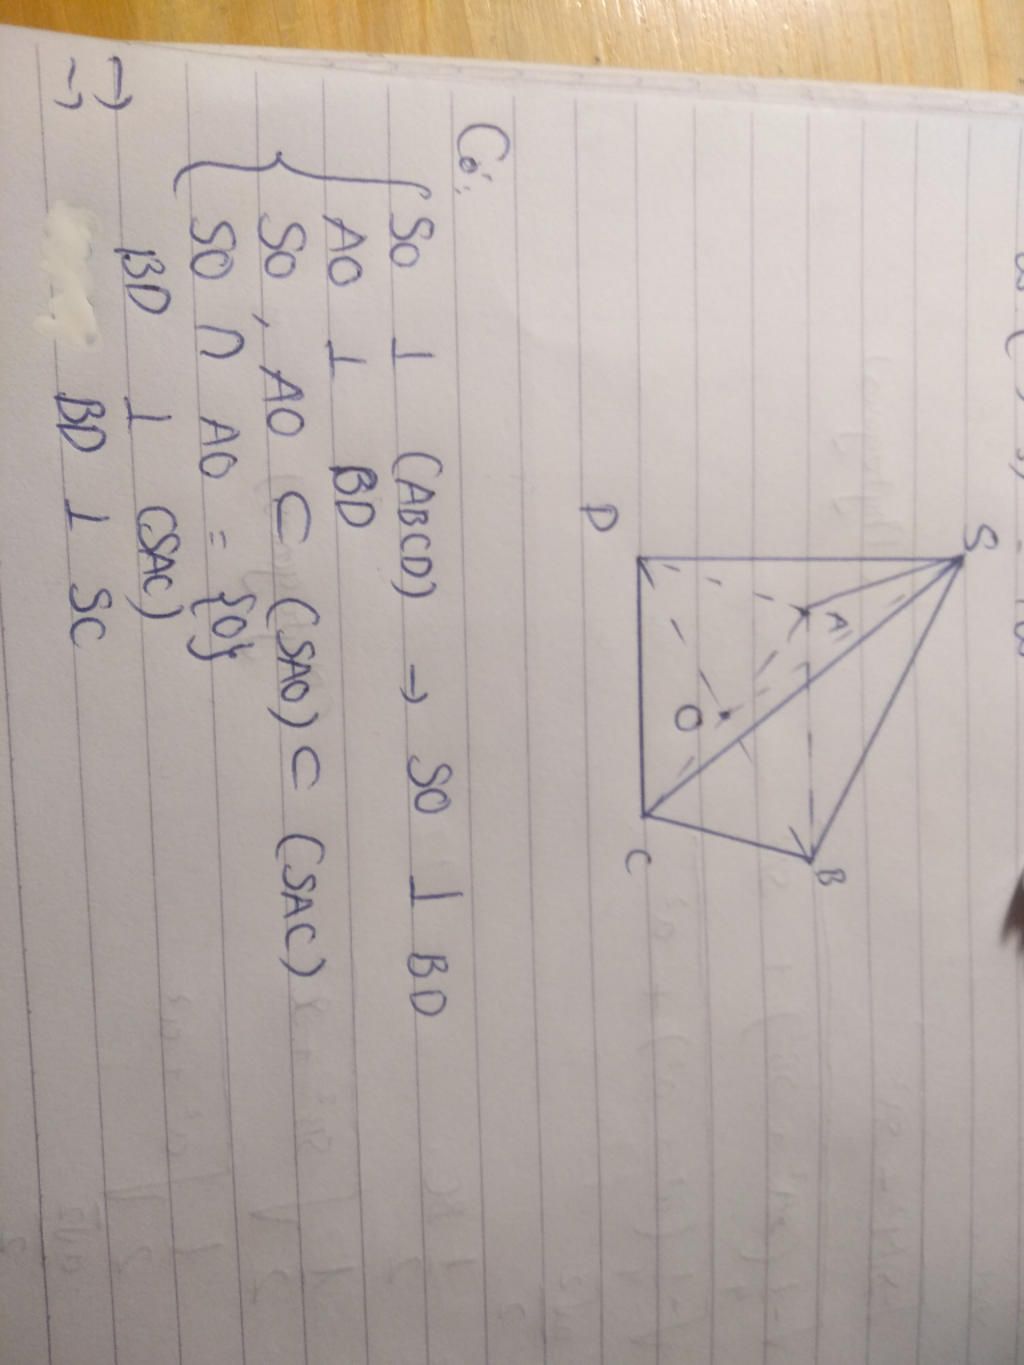 S
A
B
D
O
C
Có:
SO ⊥ (ABCD) → SO ⊥ BD
AO ⊥ BD
SO, AO ⊂ (SAO) ⊂ (SAC)
SO ∩ AO = {O}
→ BD ⊥ (SAC)
→ BD ⊥ SC